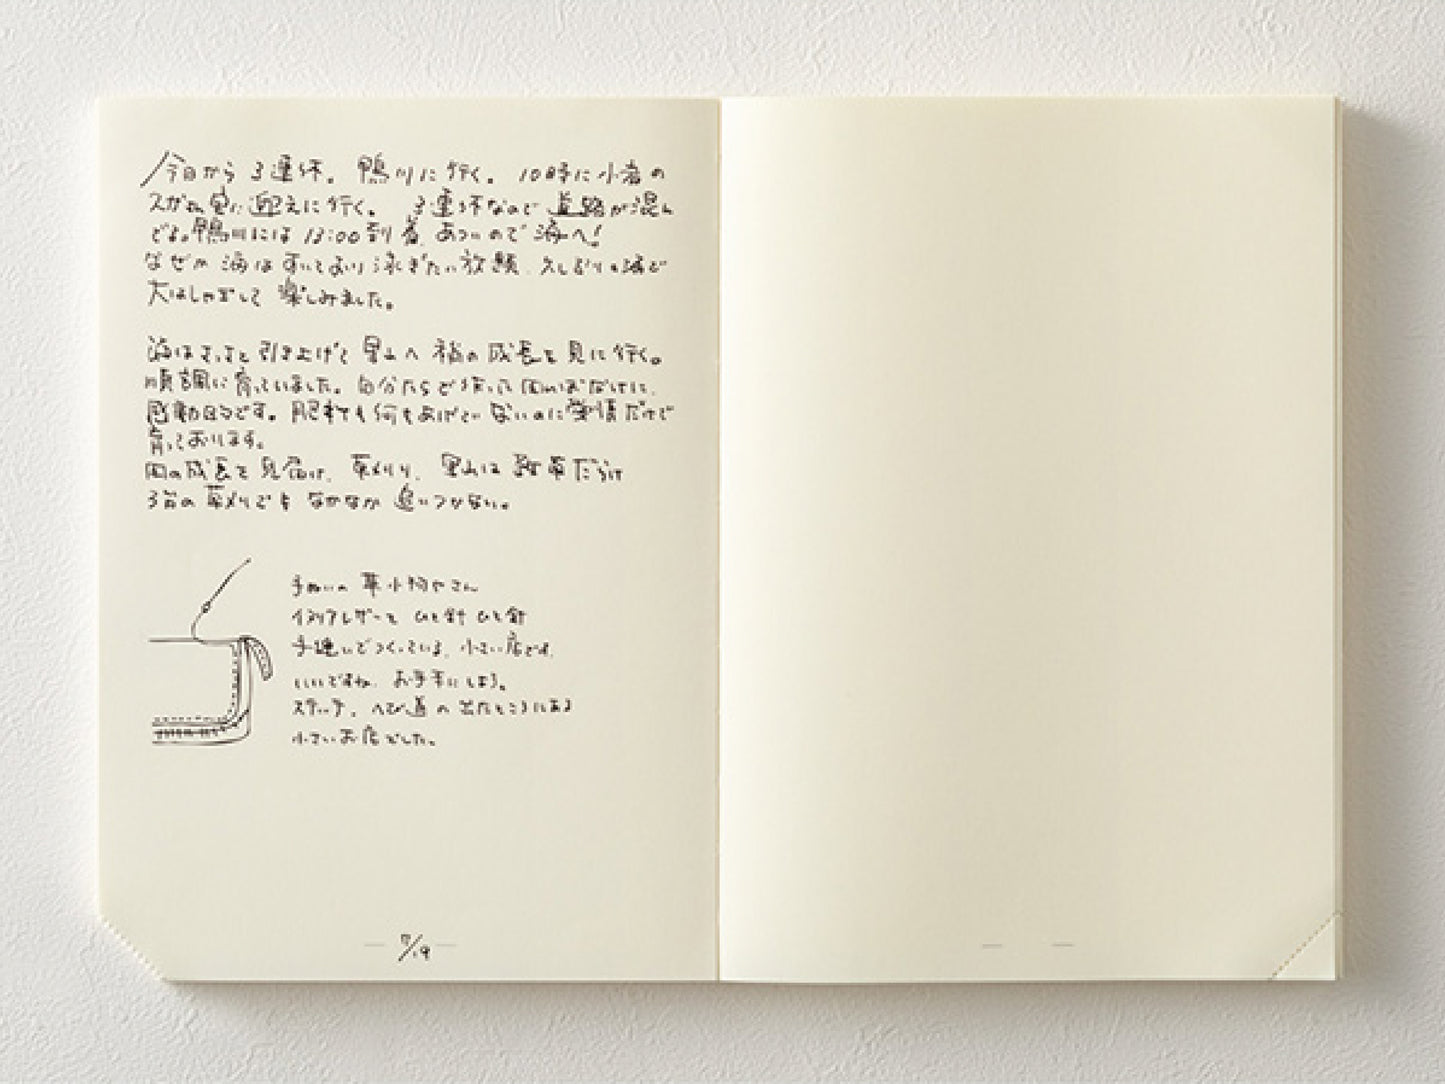 今日から3連休。鴨川に行く。10時に小岩の
迎えに行く。3連休なので道路が混ん
でる。鴨川には13:00到着、あついので海へ!
なぜか海はすいており泳ぎたい放題、久しぶりの海で
大はしゃぎして楽しみました。
海はさっさと引き上げて里山へ稲の成長を見に行く。
順調に育っていました。自分たちで作った田んぼだけに、
感動的です。肥料も何もあげていないのに愛情だけで
育っております。
田の成長を見届け、草刈り、里山は雑草だらけ
3台の草刈りでもなかなか追いつかない。
手ぬいの革小物やさん
イタリアレザーを ひと針ひと針
手縫いでつくっている、小さい店です。
いいですね、お手本にしよう。
ステッチ、へび道の出たところにある
小さいお店でした。
7/19